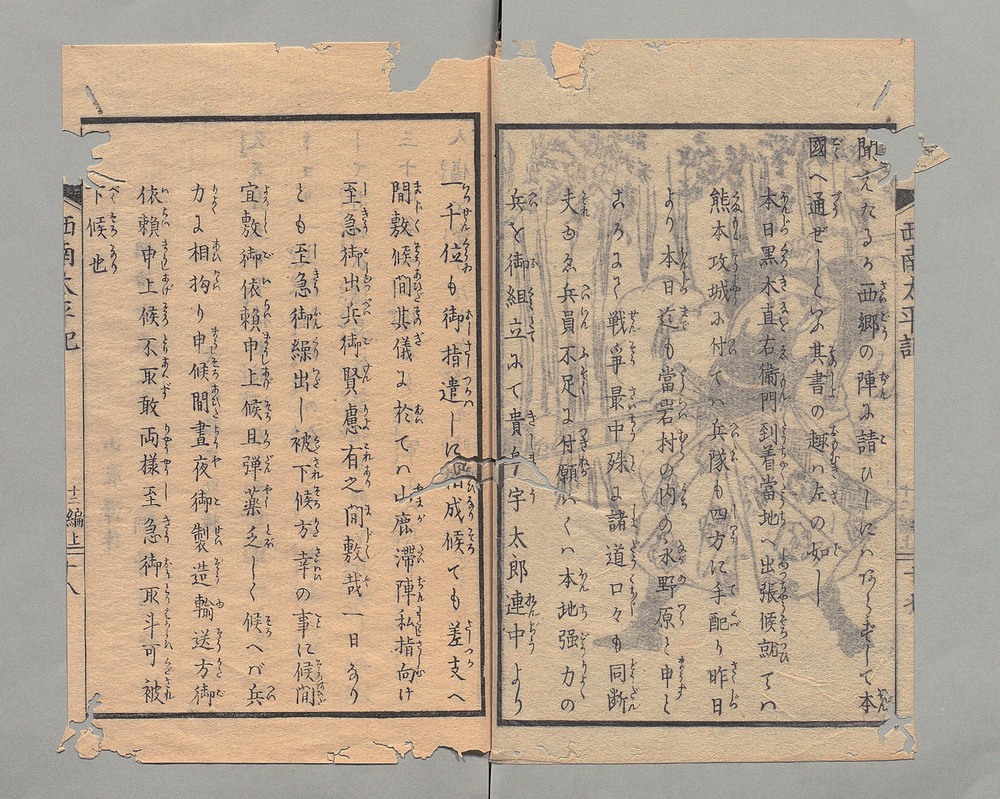 聞えたるゟ西郷の陣に請ひしにハあらずして本
國へ通ぜしとぞ其書の趣ハ左の如し
本日黒木直右衛門到着當地へ出張候就てハ
熊本攻城に付てハ兵隊も四方に手配り昨日
より本日迄も當岩村の内の水野原と申と
ころにて戦爭最中殊に諸道口々も同断
夫ゆゑ兵員不足に付願くハ本地强力の
兵を御組立にて貴 宇太郎連中より
一千位も御指遣しに相成候ても差支へ
間敷候間其儀に於てハ山鹿滞陣私指向け
至急御出兵御賢慮有之間敷哉一日なり
とも至急御繰出し被下候方幸の事に候間
宜敷御依頼申上候且弾藥乏しく候へバ兵
力に相拘り申候間晝夜御製造輸送方御
依頼申上候不取敢両樣至急御取斗可被
下候也
西南太平記
十二編上
十八